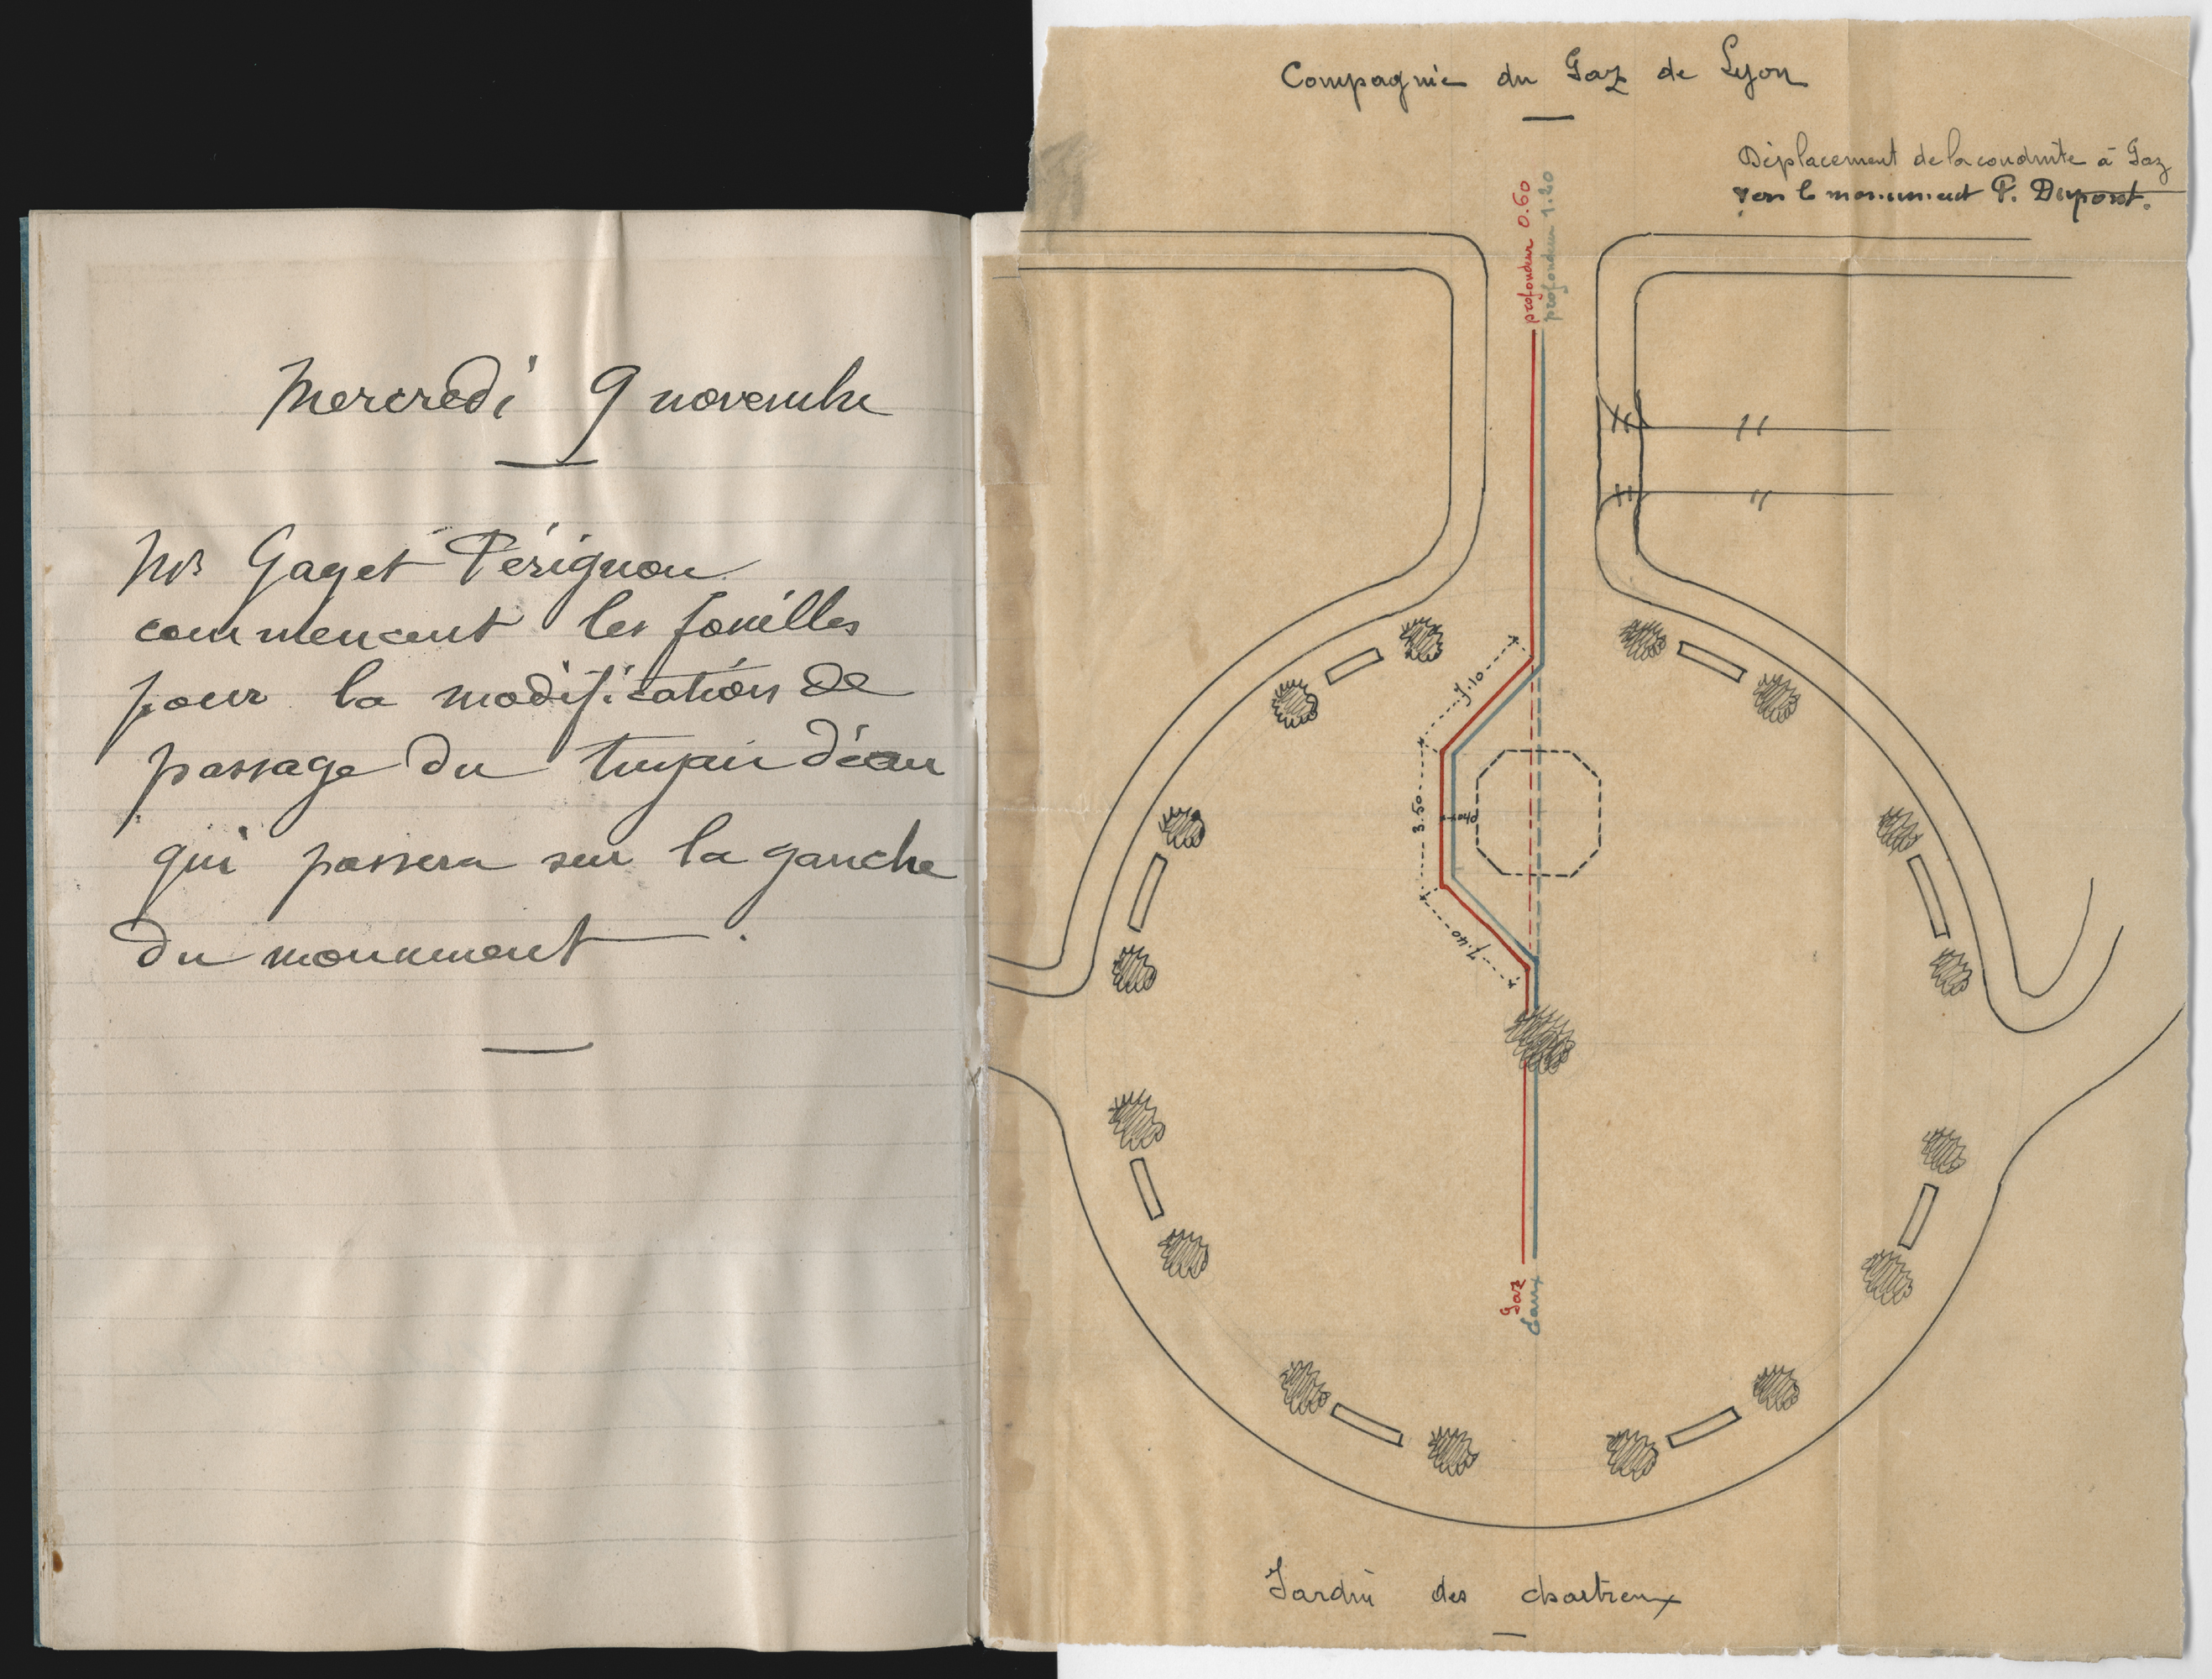 Mercredi 9 novembre
Mrs Gaget Pérignon
commencent les fouilles
pour la modification de
passage du tuyau d'eau
qui passera sur la gauche
du monument.
Compagnie du Gaz de Lyon
Déplacement de la conduite à Gaz
vers le monument P. Dupont.
profondeur 0.60
profondeur 1.20
3.50
7.40
Gaz
Eaux
Jardin des chartreux